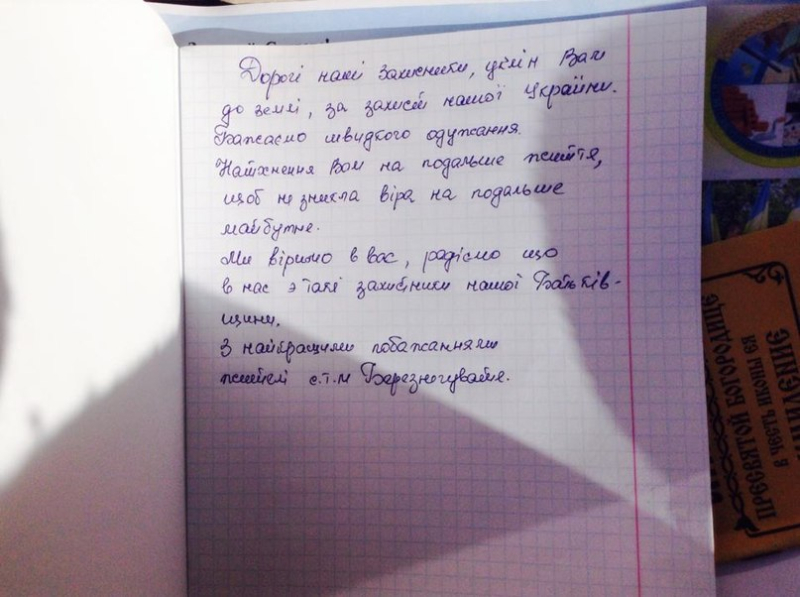 Дорогі наші Захисники, уклін Вам
до землі, за захист нашої України.
Бажаємо швидкого одужання.
Натхнення Вам на подальше життя,
щоб не зникла віра на подальше
майбутнє.
Ми віримо в вас, радіємо що
в нас э такі захисники нашої Батьків-
щини.
З найкращими побажаннями
жителі с.т.м Березнегувате.
ПРЕСВЯТОЙ БОГОРОДИЦЕ
В ЧЕСТЬ ИКОНЫ ЕЯ